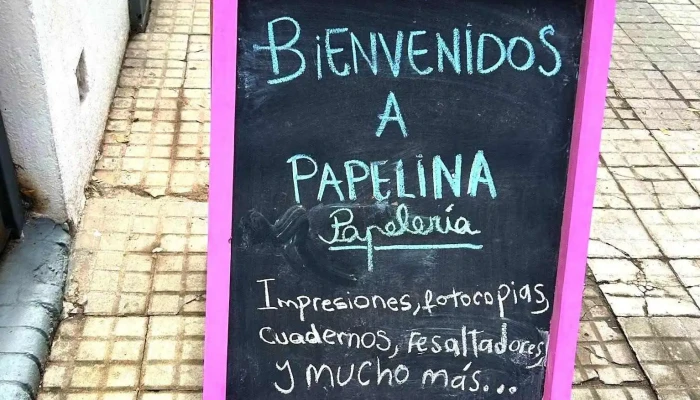 BIENVENIDOS
A
PAPELINA
Papelería
Impresiones, fotocopias,
cuadernos, resaltadores,
y mucho más...